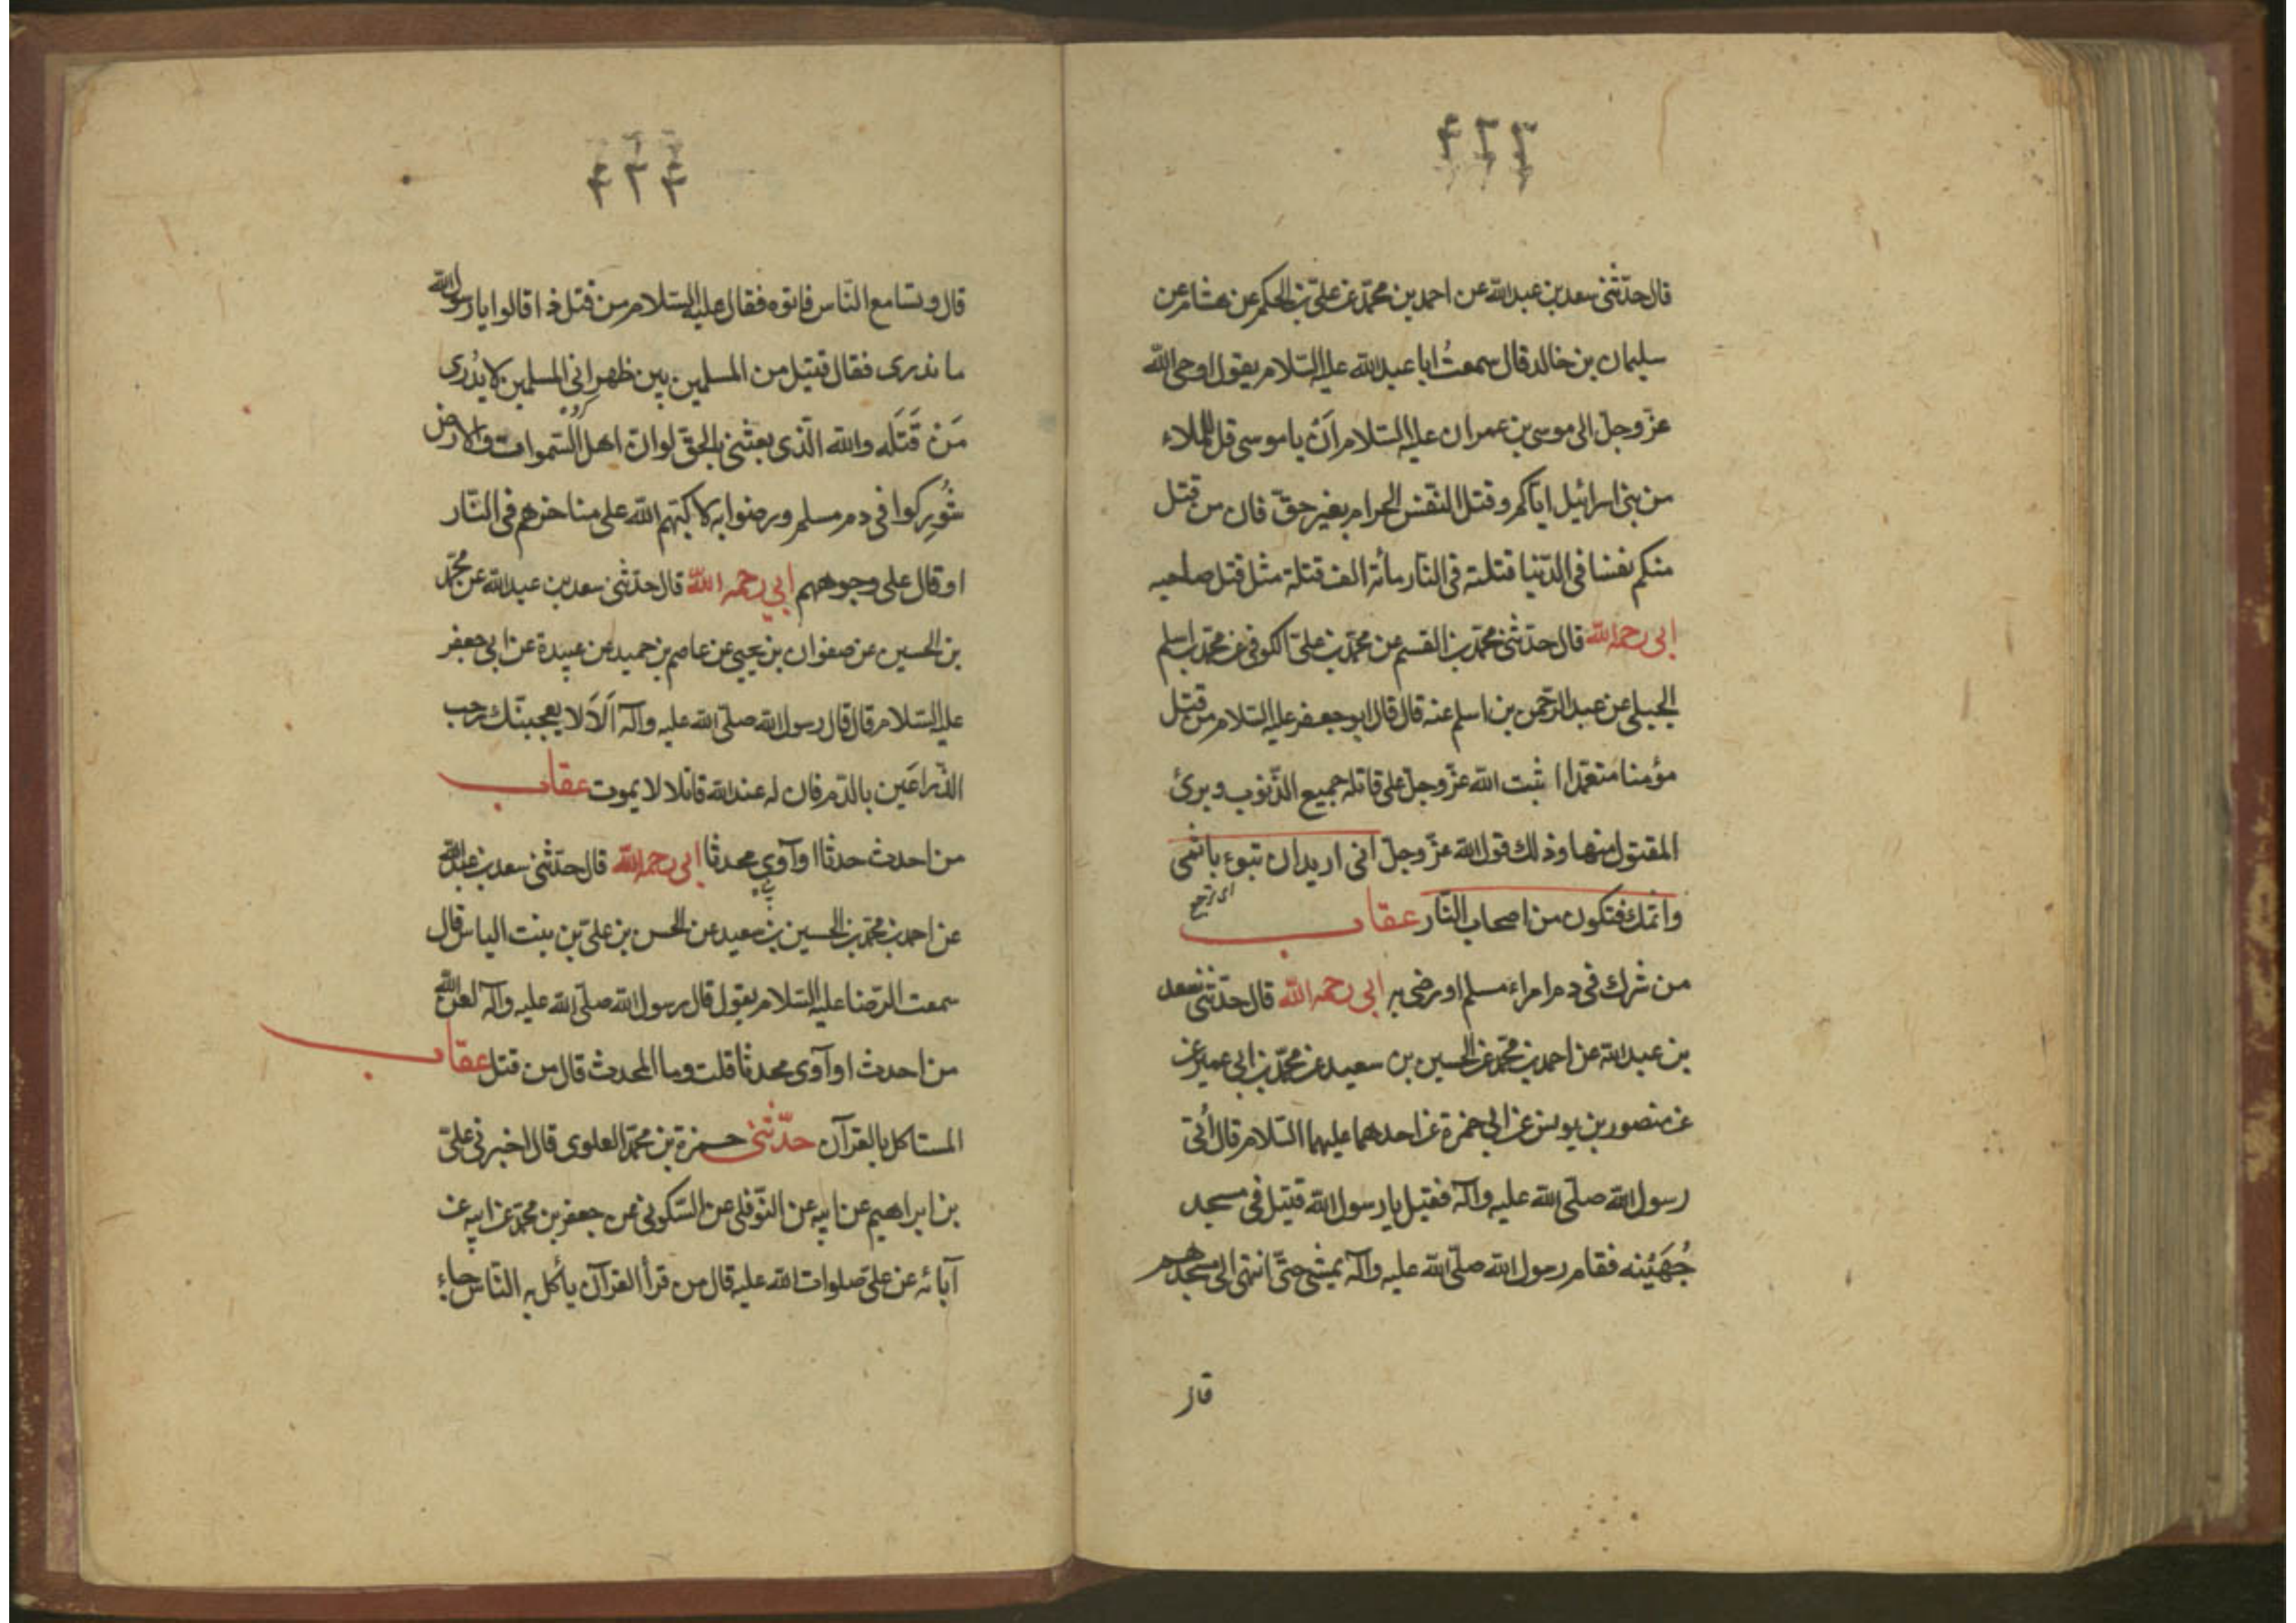 ۴۲۳
قال حدّثنی سعد بن عبدالله عن احمد بن محمّد عن علیّ بن الحکم عن هشام عن
سلیمان بن خالد قال سمعتُ ابا عبدالله علیه السّلام یقول اوحی الله
عزّ وجلّ الی موسی بن عمران علیه السّلام اَنْ یا موسی قل للملاء
من بنی اسرائیل ایّاکم و قتل النّفس الحرام بغیر حقّ فان من قتل
منکم نفسا فی الدّنیا قتلته فی النّار مأئة الف قتلة مثل قتل صاحبه
ابی رحمه الله قال حدّثنی محمّد بن القسم عن محمّد بن علیّ الکوفی عن محمّد بن اسلم
الجبلی عن عبد الرّحمن بن اسلم عنه قال قال ابو جعفر علیه السّلام من قتل
مؤمنا متعمّدا اثبت الله عزّ وجلّ علی قاتله جمیع الذّنوب و برئ
المقتول منها و ذلك قول الله عزّ وجلّ انی ارید ان تبوء باثمی
ای ترجع
واثمك فتکون من اصحاب النّار عقاب
من شرك فی دم امراء مسلم او رضی به ابی رحمه الله قال حدّثنی سعد
بن عبدالله عن احمد بن محمّد عن الحسین بن سعید عن محمّد بن ابی عمیر عن
عن منصور بن یونس عن ابی حمزة عن احدهما علیهما السّلام قال اُتی
رسول الله صلّی الله علیه وآله فقیل یا رسول الله قتیل فی مسجد
جُهَیْنه فقام رسول الله صلّی الله علیه وآله یمشی حتّی انتهی الی مسجدهم
قال
۴۲۴
قال و تسامع النّاس فاتوه فقال علیه السّلام من قتل ذا قالوا یا رسول الله
ما ندری فقال قتیل من المسلمین بین ظهرانی المسلمین لا یُدْری
مَنْ قَتَلَه والله الّذی بعثنی بالحقّ لو انّ اهل السّموات والارض
شُورِکوا فی دم مسلم و رضوا به لاکبّهم الله علی مناخرهم فی النّار
او قال علی وجوههم ابی رحمه الله قال حدّثنی سعد بن عبدالله عن محمّد
بن الحسین عن صفوان بن یحیی عن عاصم بن حمید عن عبیدة عن ابی جعفر
علیه السّلام قال قال رسول الله صلّی الله علیه وآله اَلَا لا یعجبنّك رحب
الذّراعَین بالدّم فان له عند الله قاتلا لا یموت عقاب
من احدث حدثا او آوی محدثا ابی رحمه الله قال حدّثنی سعد بن عبدالله
عن احمد بن محمّد بن الحسین بن سعید عن الحسن بن علیّ بن بنت الیاس قال
سمعت الرّضا علیه السّلام یقول قال رسول الله صلّی الله علیه وآله لعن الله
من احدث او آوی محدثا قلت وما المحدث قال من قتل عقاب
المستاکل بالقرآن حدّثنی حمزة بن محمّد العلوی قال اخبرنی علیّ
بن ابراهیم عن ابیه عن النّوفلی عن السّکونی عن جعفر بن محمّد عن ابیه عن
آبائه عن علیّ صلوات الله علیه قال من قرأ القرآن یأکل به النّاس جاء